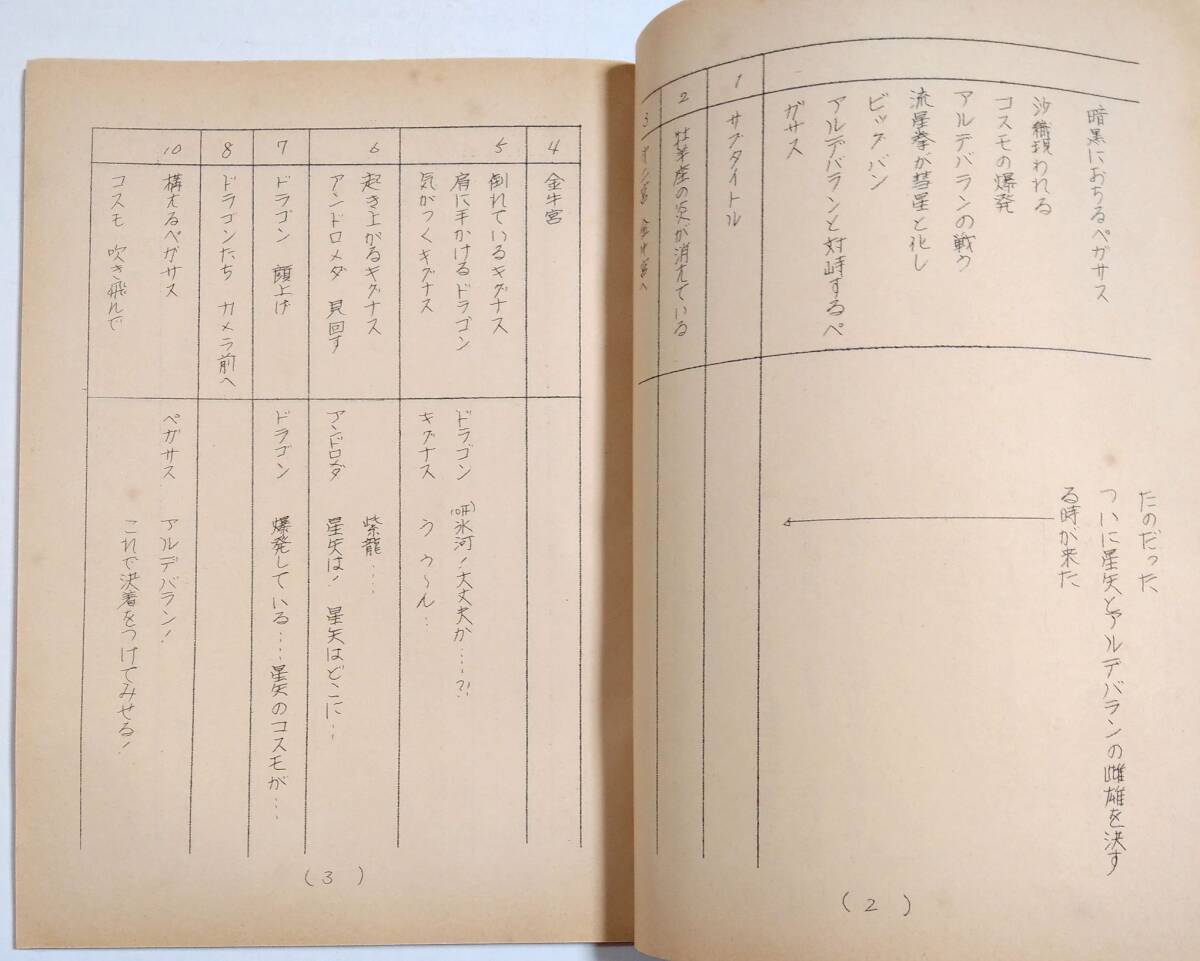 暗黒におちるペガサス
沙織現われる
コスモの爆発
アルデバランの戦い
流星拳が彗星と化し
ビッグバン
アルデバランと対峙するペ
ガサス
たのだった
ついに星矢とアルデバランの雌雄を決す
る時が来た
1
サブタイトル
2
牡羊座の火が消えている
3
(2)
4
金牛宮
5
倒れているキグナス
肩に手かけるドラゴン
気がつくキグナス
ドラゴン (OFF)氷河!大丈夫か…?!
キグナス う、う〜ん…
6
起き上がるキグナス
アンドロメダ 見回す
アンドロメダ 紫龍…
星矢は! 星矢はどこに…
7
ドラゴン 顔上げ
ドラゴン 爆発している…星矢のコスモが…
8
ドラゴンたち カメラ前へ
10
構えるペガサス
コスモ 吹き飛んで
ペガサス アルデバラン!
これで決着をつけてみせる!
(3)